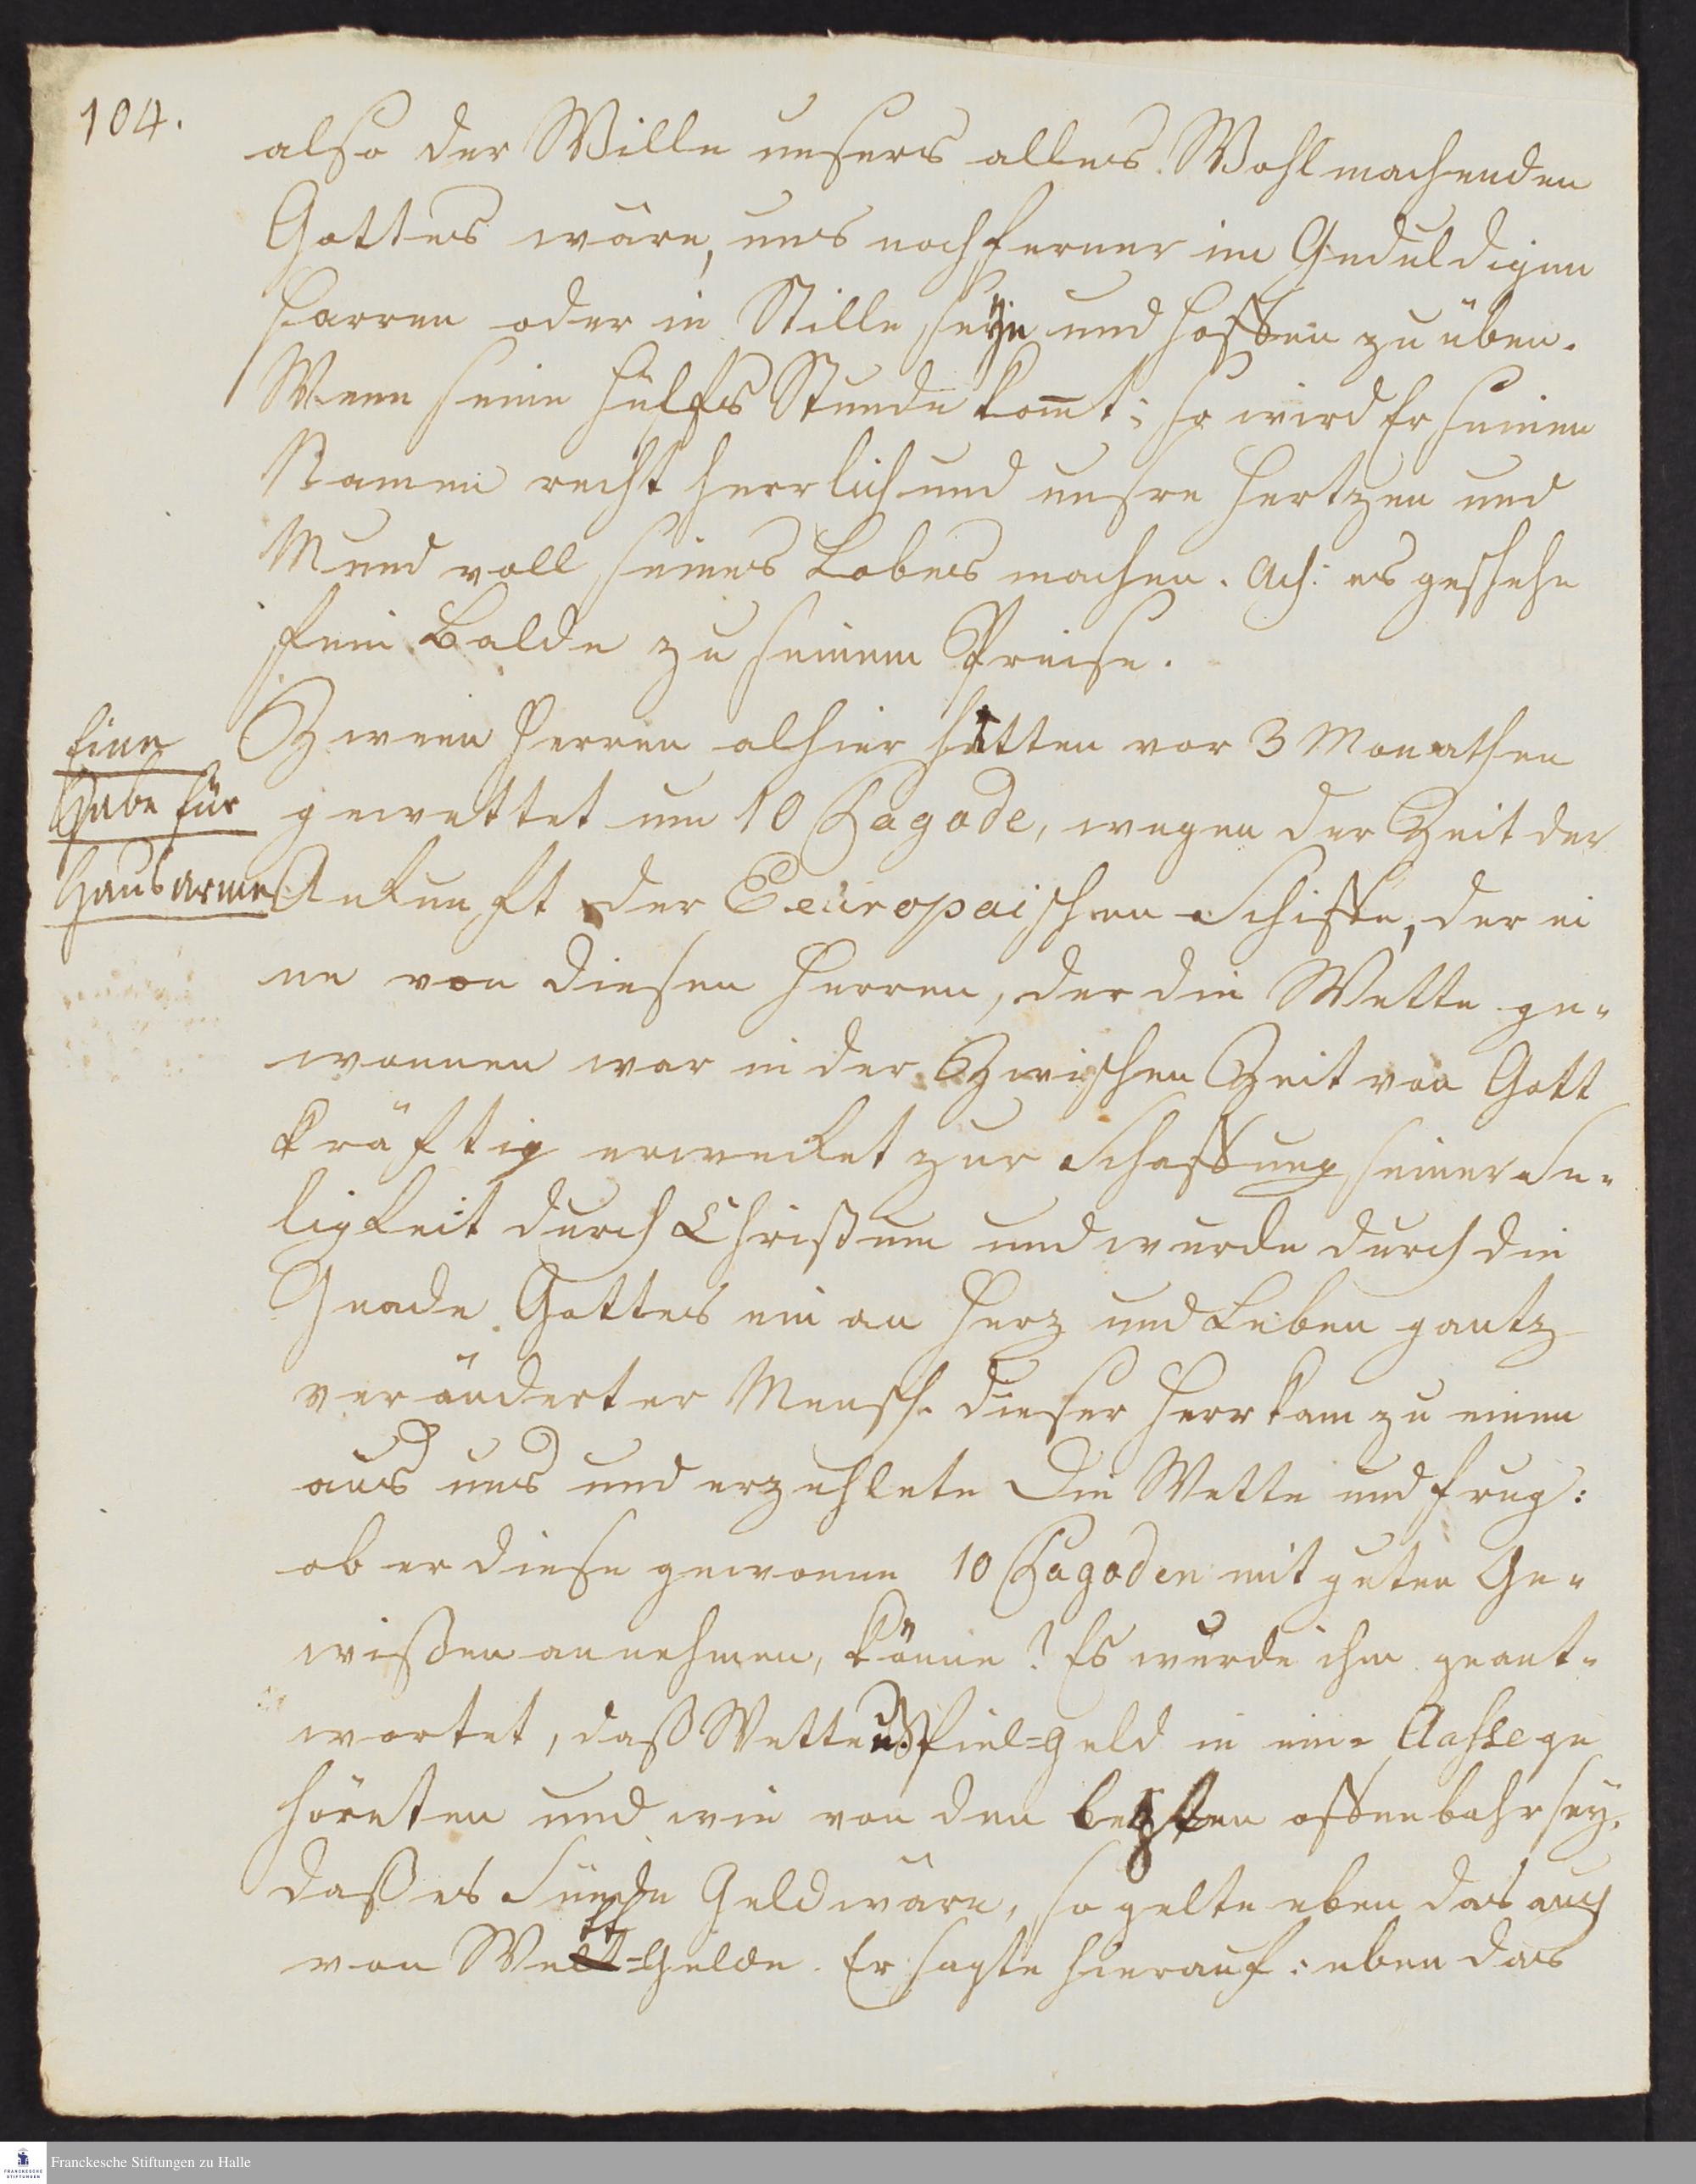 104.
also der Wille unsers alles Wohl machenden
Gottes wäre, uns noch ferner im Geduldigen
harren oder in Stille seÿn und hoffen zu üben.
Wenn seine Hülfs Stunde kom̄t; so wird Er seinen
Namen recht herrlich und unsre Hertzen und
Mund voll seines Lobes machen. Ach: es geschehe
fein balde zu seinem Preise.
Eine
Gabe für
Hausarme
Zween Herren alhier hatten vor 3 Monathen
gewettet um 10 Pagode, wegen der Zeit der
Ankunft der Eeuropaischen Schiffe, der ei
ne von diesen Herren, der die Wette ge-
wonnen war in der Zwischen Zeit von Gott
kräftig erwecket zur Schaffung seiner Se-
ligkeit durch Christum und wurde durch die
Gnade Gottes ein an Herz und Leben gantz
veränderter Mensch. dieser Herr kam zu einem
aus uns und erzehlete die Wette und frug:
ob er diese gewonne 10 Pagoden mit guten Ge-
wißen annehmen, könne? Es wurde ihm geant-
wortet, daß Wette u. Spiel=geld in eine Classe ge
höreten und wie von den letzten offenbahr seÿ,
daß es Sünde Geld wäre, so gelte eben das auch
von Wett=Gelde. Er sagte hierauf: eben das
Franckesche Stiftungen zu Halle